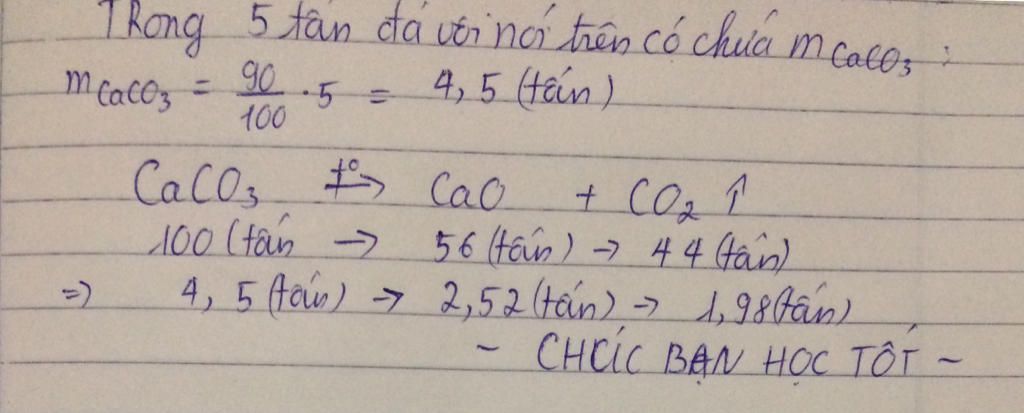 TRong 5 tấn đá vôi nói trên có chứa mCaCO₃ :
mCaCO₃ = 90/100 . 5 = 4,5 (tấn)
CaCO₃ t°→ CaO + CO₂ ↑
100 (tấn → 56 (tấn) → 44 (tấn)
=> 4,5 (tấn) → 2,52 (tấn) → 1,98 (tấn)
~ CHÚC BẠN HỌC TỐT ~